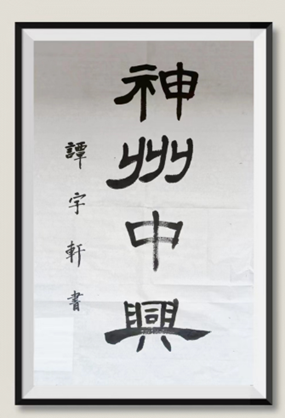 神州中興
譚宇軒書